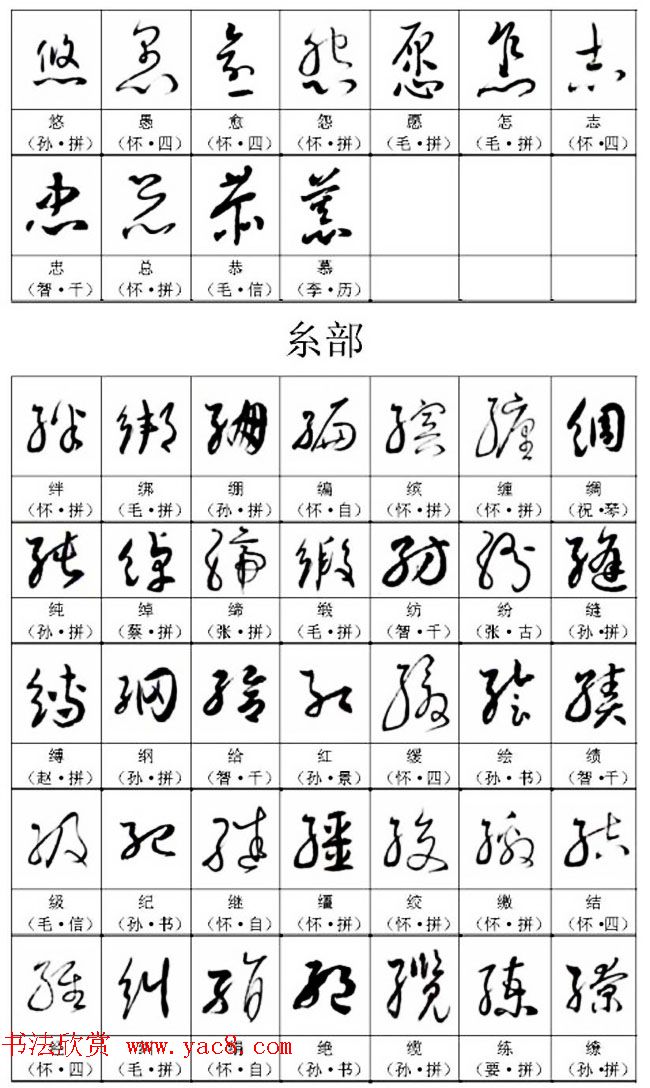 悠 愚 愈 怨 愿 怎 志
（孙·拼） （怀·四） （怀·四） （怀·拼） （毛·拼） （毛·拼） （怀·四）
忠 总 恭 慕
（智·千） （怀·拼） （毛·信） （李·历）
糸部
绊 绑 绷 编 缤 缠 绸
（怀·拼） （毛·拼） （孙·拼） （怀·自） （怀·拼） （怀·拼） （祝·琴）
纯 绰 缔 缎 纺 纷 缝
（孙·拼） （蔡·拼） （张·拼） （毛·拼） （智·千） （张·古） （孙·拼）
缚 纲 给 红 缓 绘 绩
（赵·拼） （孙·拼） （智·千） （孙·景） （怀·四） （孙·书） （智·千）
级 纪 继 缰 绞 缴 结
（毛·信） （孙·书） （怀·自） （怀·拼） （怀·拼） （怀·拼） （怀·四）
绝 缆 练 缭
书法欣赏 www.yac8.com
（怀·四） （毛·拼） （怀·自） （孙·书） （孙·拼） （要·拼） （孙·拼）